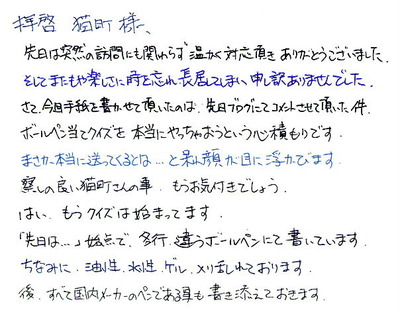 拝啓 猫町様、
先日は突然の訪問にも関わらず温かく対応頂きありがとうございました。
そしてまたもや楽しさに時を忘れ長居してしまい申し訳ありませんでした。
さて、今回手紙を書かせて頂いたのは、先日ブログにてコメントさせて頂いた件、
ボールペン当てクイズを本当にやっちゃおうという心積もりです。
まさか本当に送ってくるとは…と呆れ顔が目に浮かびます。
察しの良い猫町さんの事、もうお気付きでしょう。
はい、もうクイズは始まってます。
「先日は…」始点で、各行、違うボールペンにて書いています。
ちなみに、油性、水性、ゲル、入り乱れております。
後、すべて国内メーカーのペンである事も書き添えておきます。